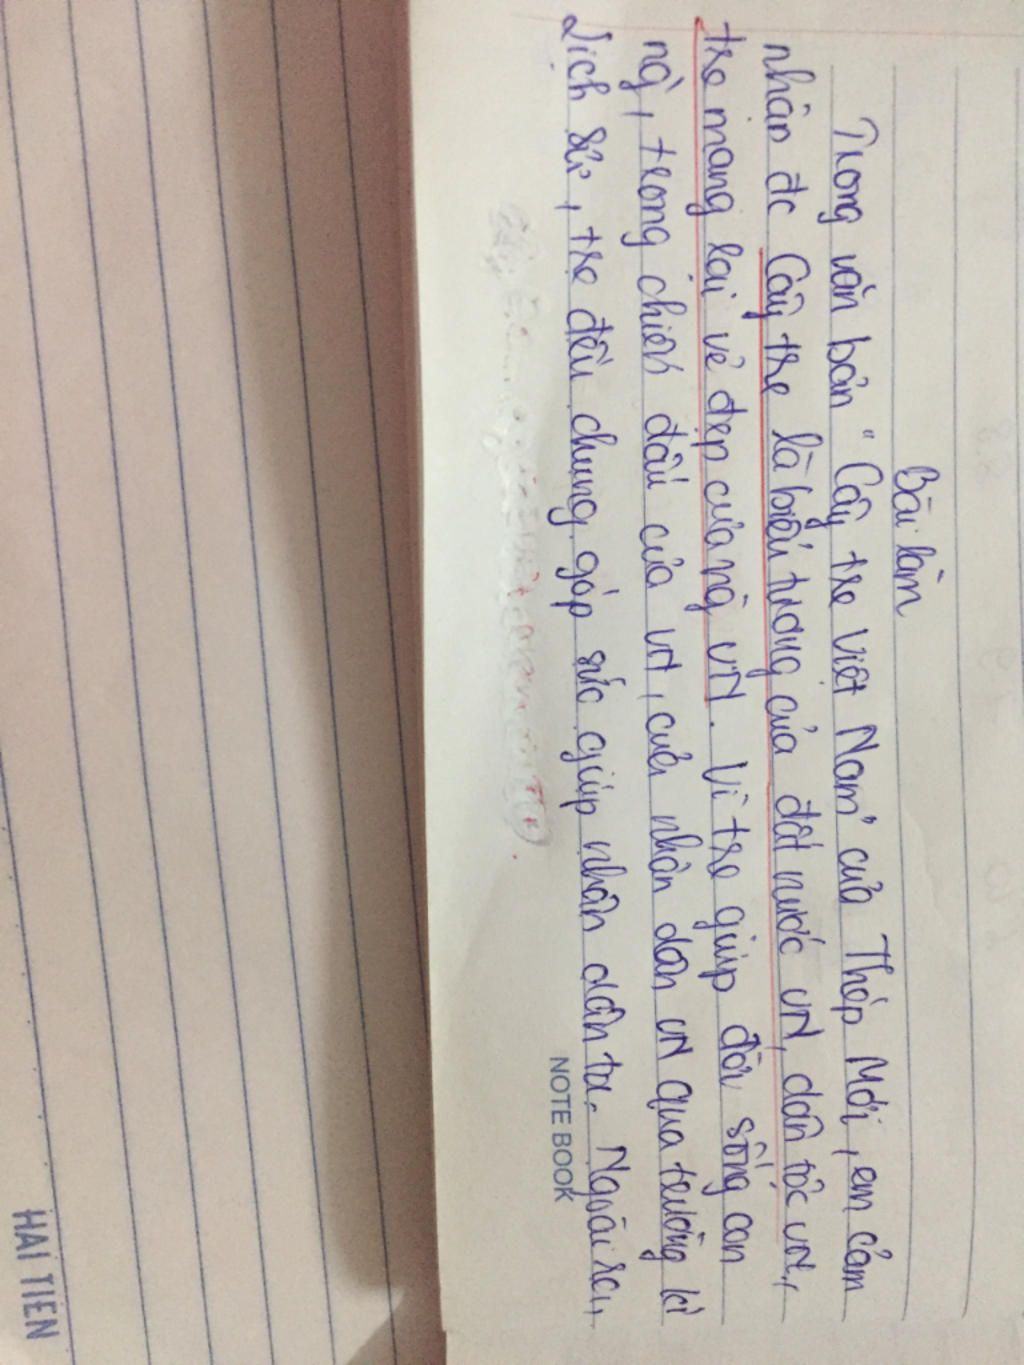 Bài làm
Trong văn bản "Cây tre Việt Nam" của Thép Mới, em cảm
nhận đc Cây tre là biểu tượng của đất nước VN, dân tộc VN,
tre mang lại vẻ đẹp của ng VN. Vì tre giúp đời sống con
ng, trong chiến đấu của VN, của nhân dân VN qua trường kì
lịch sử, tre đều chung góp sức giúp nhân dân ta. Ngoài ra,
NOTE BOOK
HẢI TIẾN